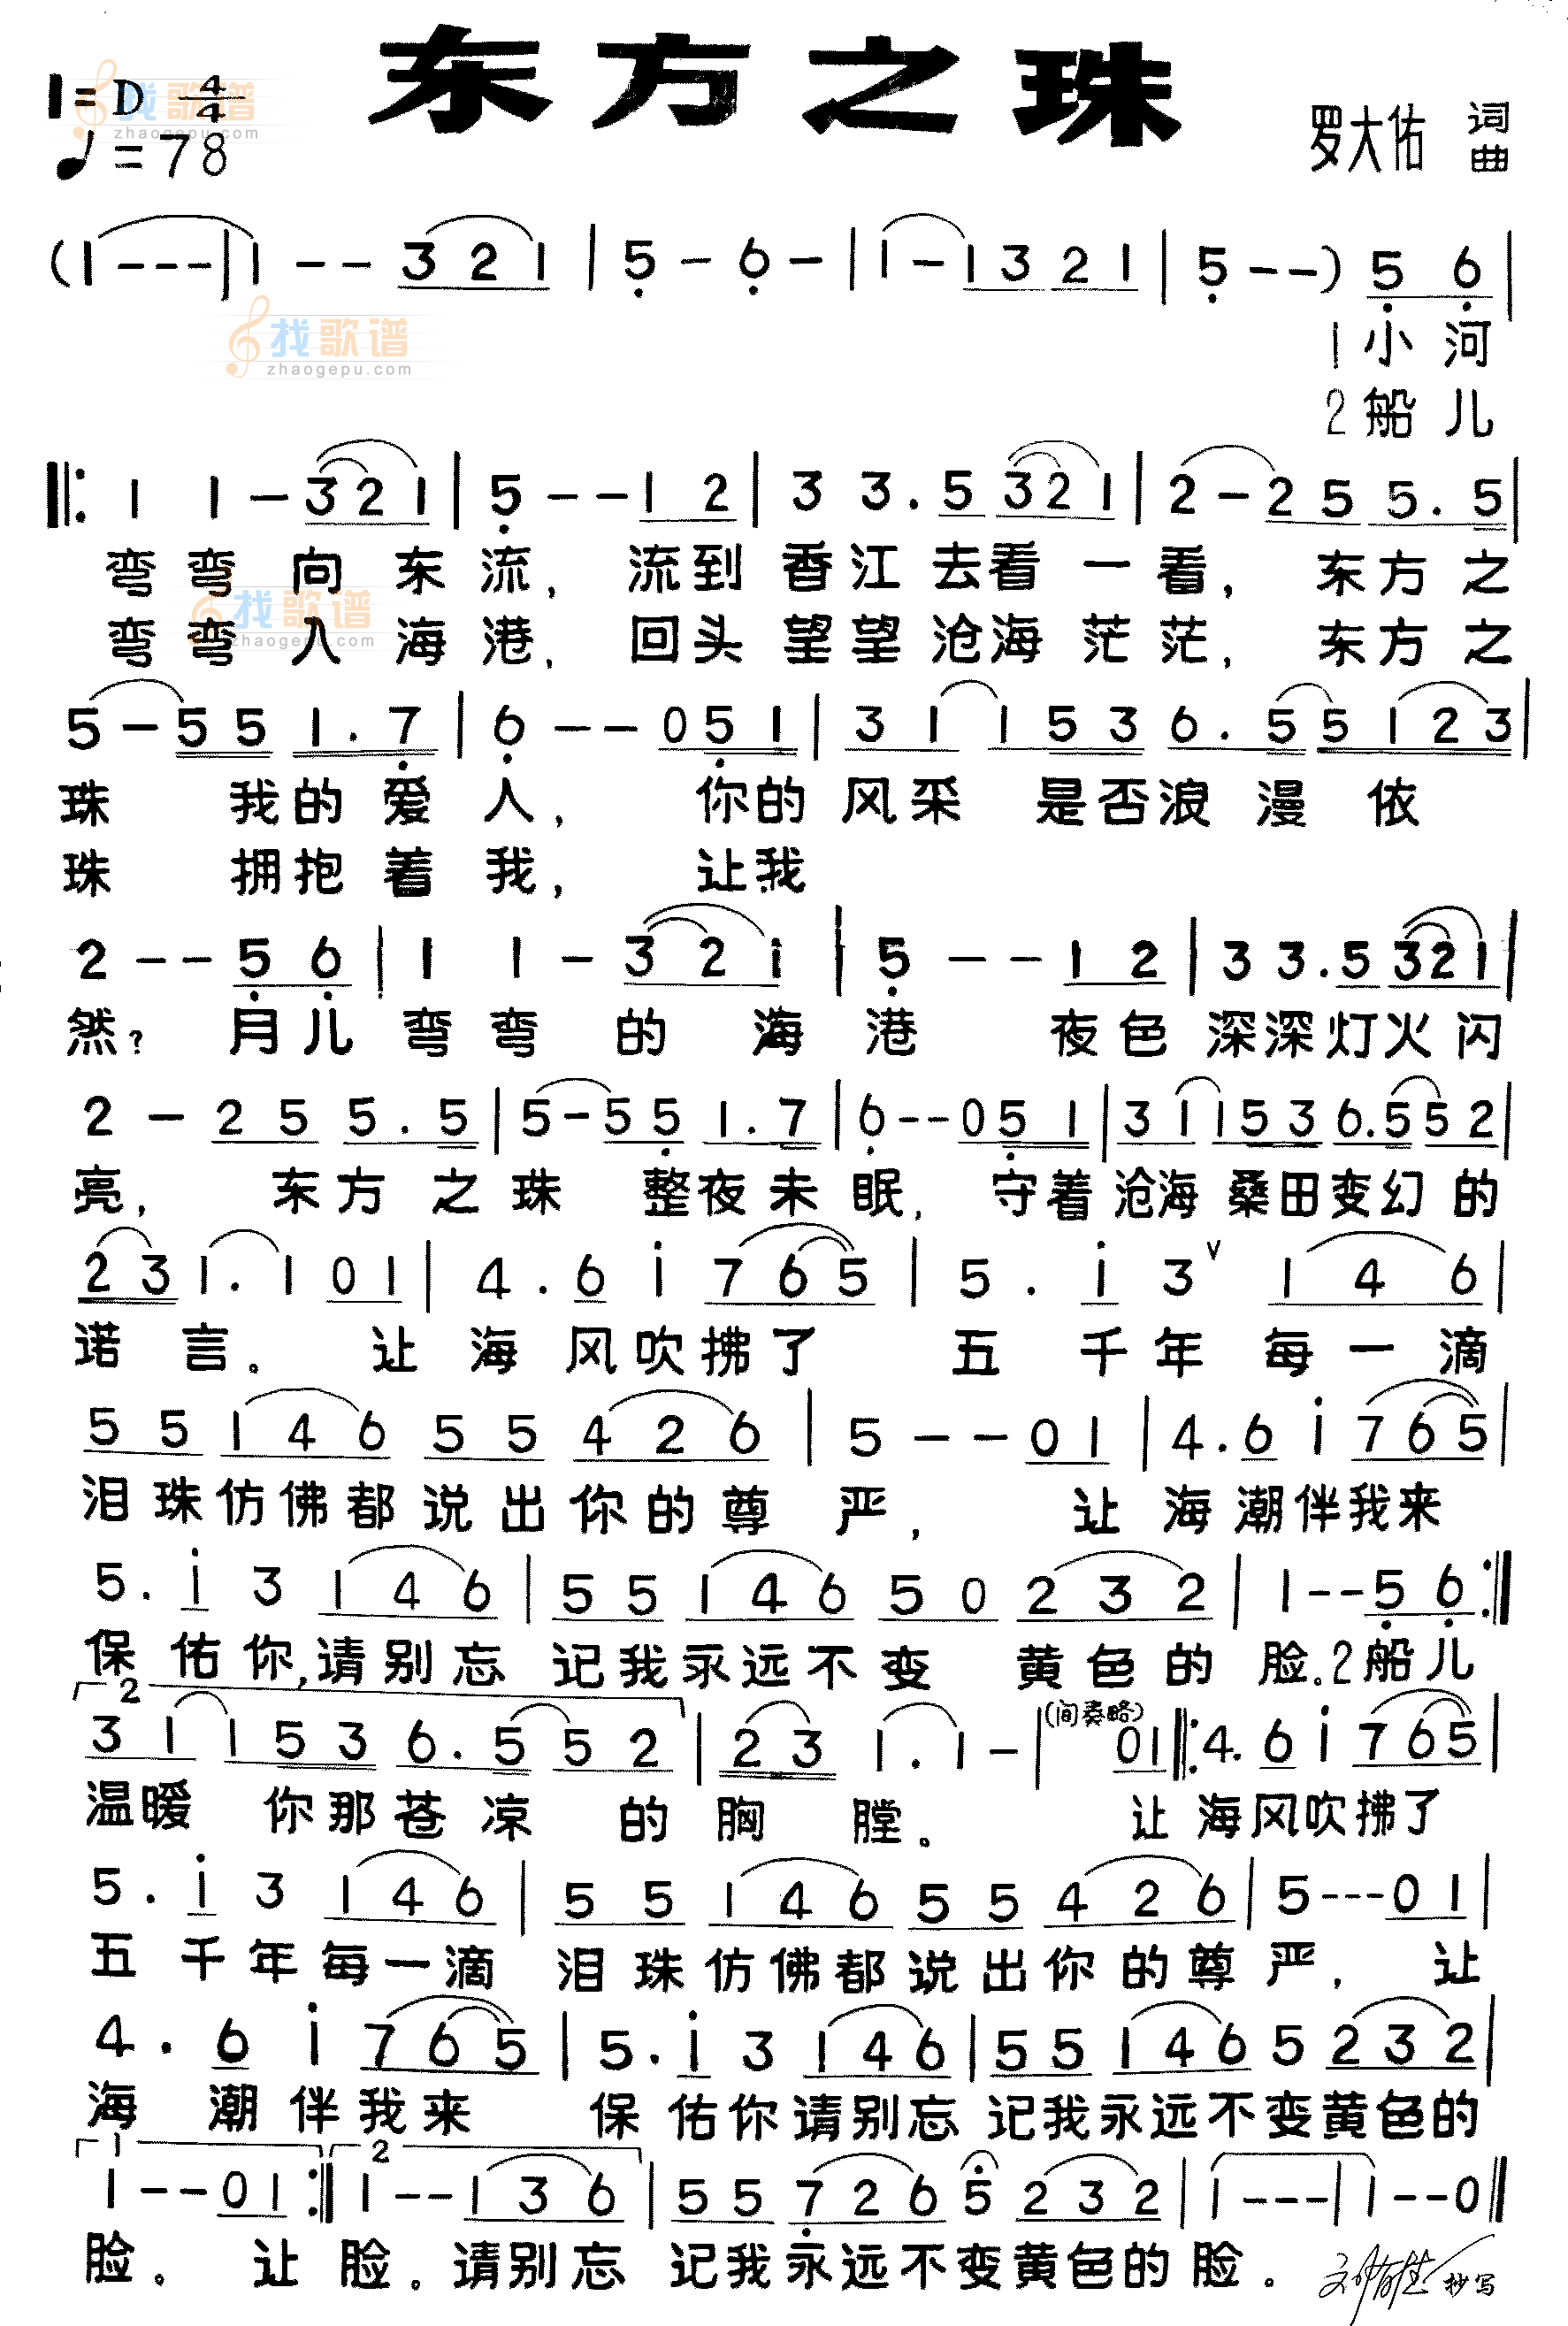 东方之珠
1=D 4/4
♩=78
罗大佑 词曲
找歌谱
zhaogepu.com
(1 - - - | 1 - - 3 2 1 | 5 - 6 - | 1 - 1 3 2 1 | 5 - - ) 5 6 |
1 小河
找歌谱
zhaogepu.com
2 船儿
‖: 1 1 - 3 2 1 | 5 - - 1 2 | 3 3 . 5 3 2 1 | 2 - 2 5 5 . 5 |
弯弯向东流, 流到香江去看一看, 东方之
找歌谱
zhaogepu.com
弯弯入海港, 回头望望沧海茫茫, 东方之
5 - 5 5 1 . 7 | 6 - - 0 5 1 | 3 1 1 5 3 6 . 5 5 1 2 3 |
珠 我的爱人, 你的风采 是否浪漫 依
珠 拥抱着我, 让我
2 - - 5 6 | 1 1 - 3 2 i | 5 - - 1 2 | 3 3 . 5 3 2 1 |
然? 月儿弯弯的海港 夜色深深灯火闪
2 - 2 5 5 . 5 | 5 - 5 5 1 . 7 | 6 - - 0 5 1 | 3 1 1 5 3 6 . 5 5 2 |
亮, 东方之珠 整夜未眠, 守着沧海桑田变幻的
2 3 1 . 1 0 1 | 4 . 6 i 7 6 5 | 5 . i 3 ∨ 1 4 6 |
诺言。 让海风吹拂了 五千年每一滴
5 5 1 4 6 5 5 4 2 6 | 5 - - 0 1 | 4 . 6 i 7 6 5 |
泪珠仿佛都说出你的尊严, 让海潮伴我来
5 . i 3 1 4 6 | 5 5 1 4 6 5 0 2 3 2 | 1 - - 5 6 :‖
保佑你,请别忘记我永远不变 黄色的脸。2船儿
2
3 1 1 5 3 6 . 5 5 2 | 2 3 1 . 1 - | (间奏略) 0 1 ‖: 4 . 6 i 7 6 5 |
温暖 你那苍凉的胸膛。 让海风吹拂了
5 . i 3 1 4 6 | 5 5 1 4 6 5 5 4 2 6 | 5 - - - 0 1 |
五千年每一滴泪珠仿佛都说出你的尊严, 让
4 . 6 i 7 6 5 | 5 . i 3 1 4 6 | 5 5 1 4 6 5 2 3 2 |
海潮伴我来 保佑你请别忘记我永远不变黄色的
1 2
1 - - 0 1 :‖ 1 - - 1 3 6 | 5 5 7 2 6 5 2 3 2 | 1 - - - | 1 - - 0 ‖
脸。 让脸。请别忘记我永远不变黄色的脸。
抄写